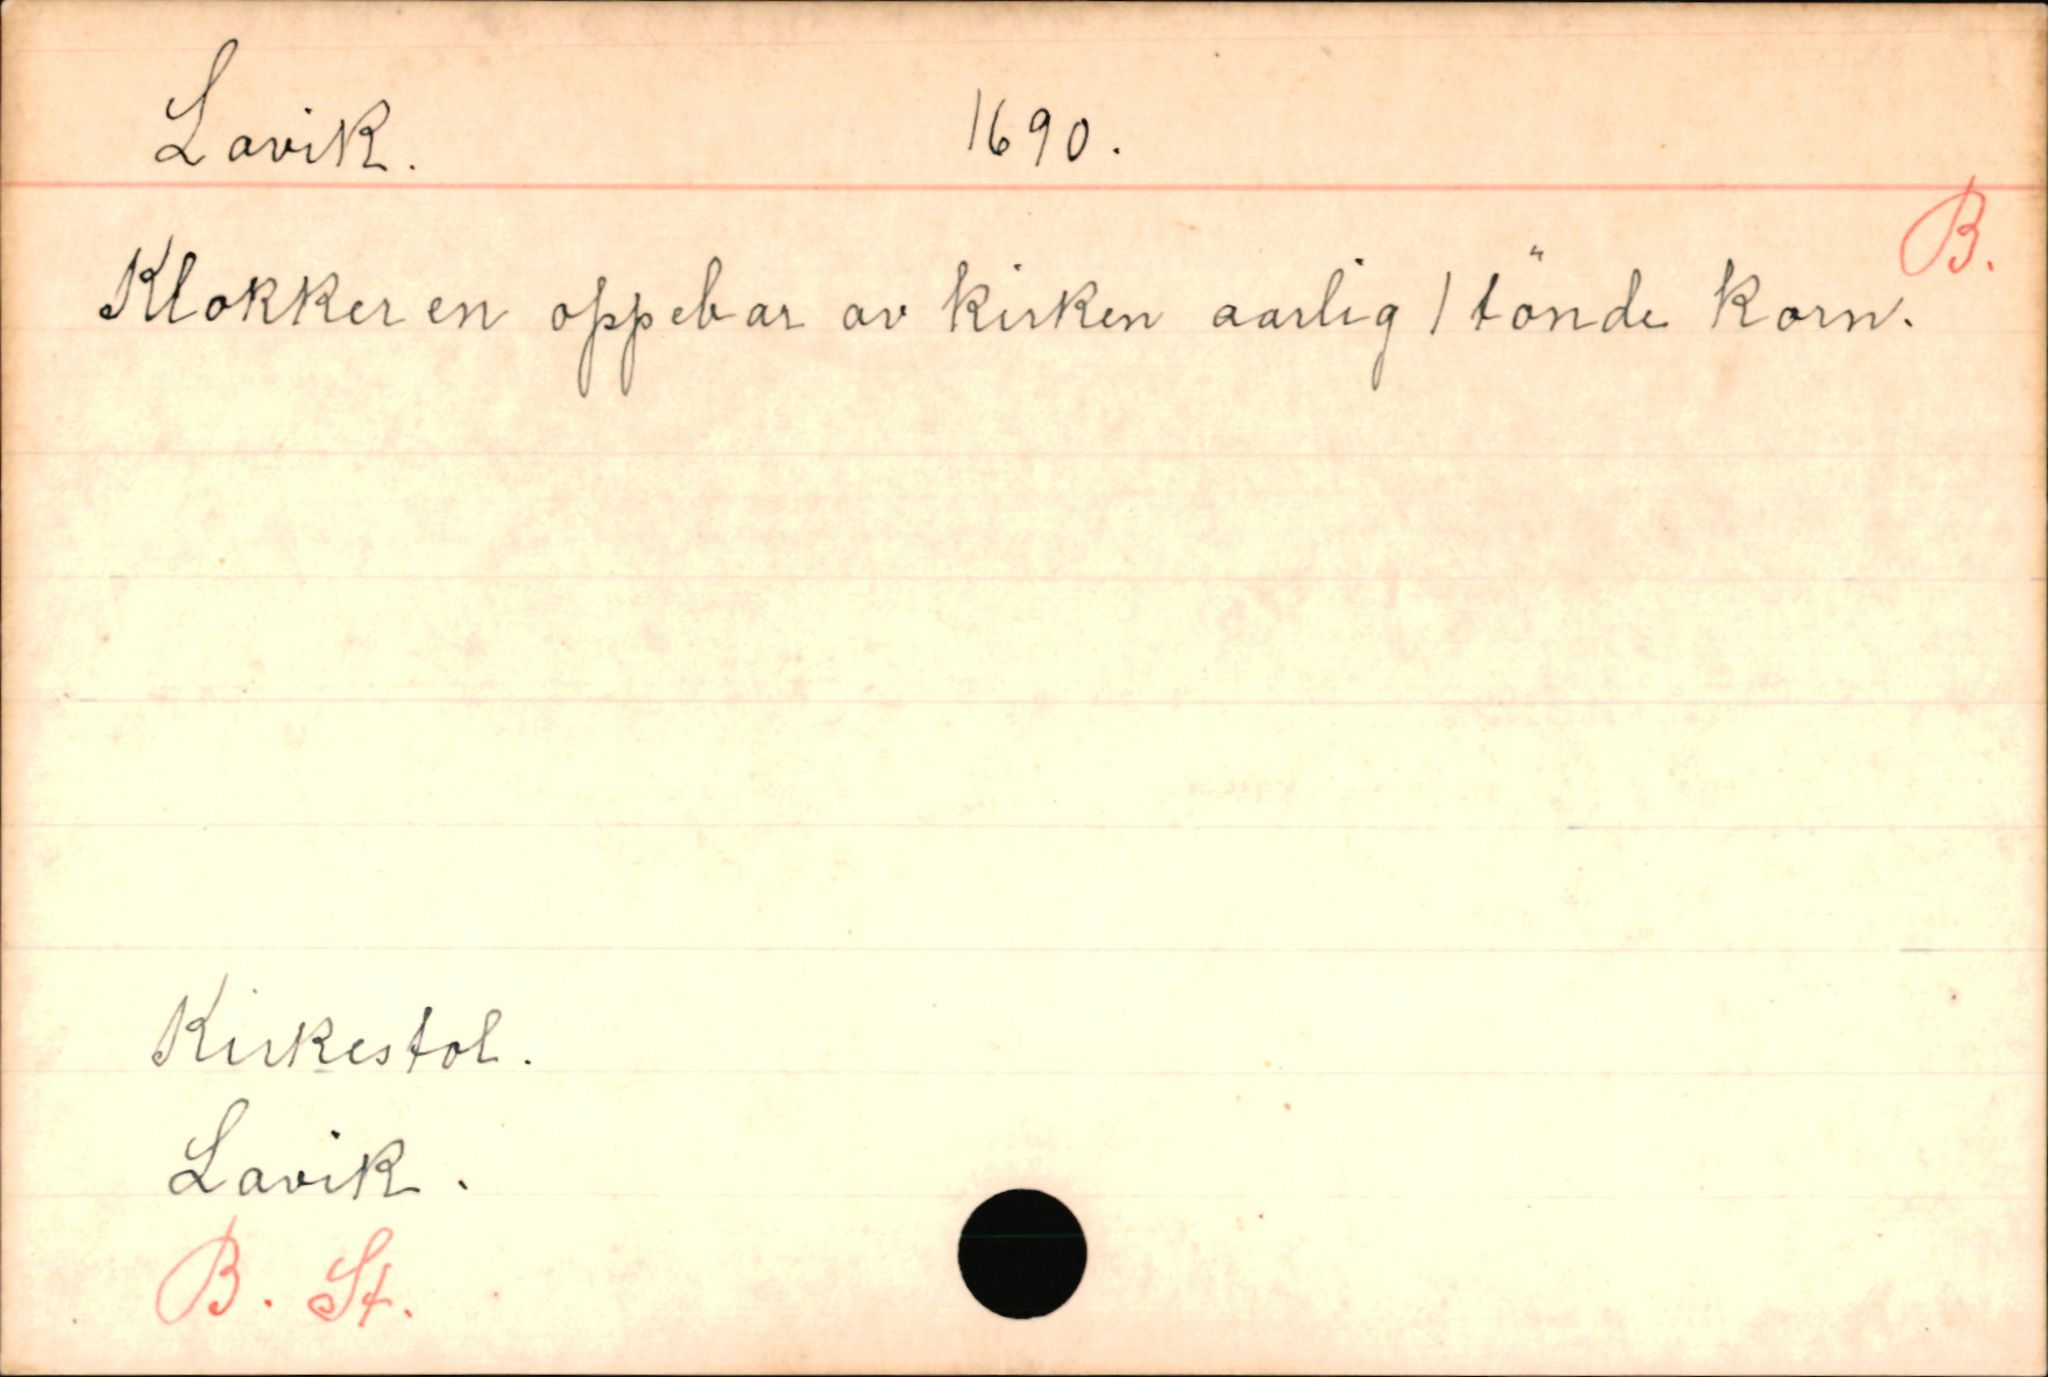 Lavik. 1690.
B.
Klokkeren oppebar av kirken aarlig 1 tönde korn.
Kirkestol.
Lavik.
B. St.